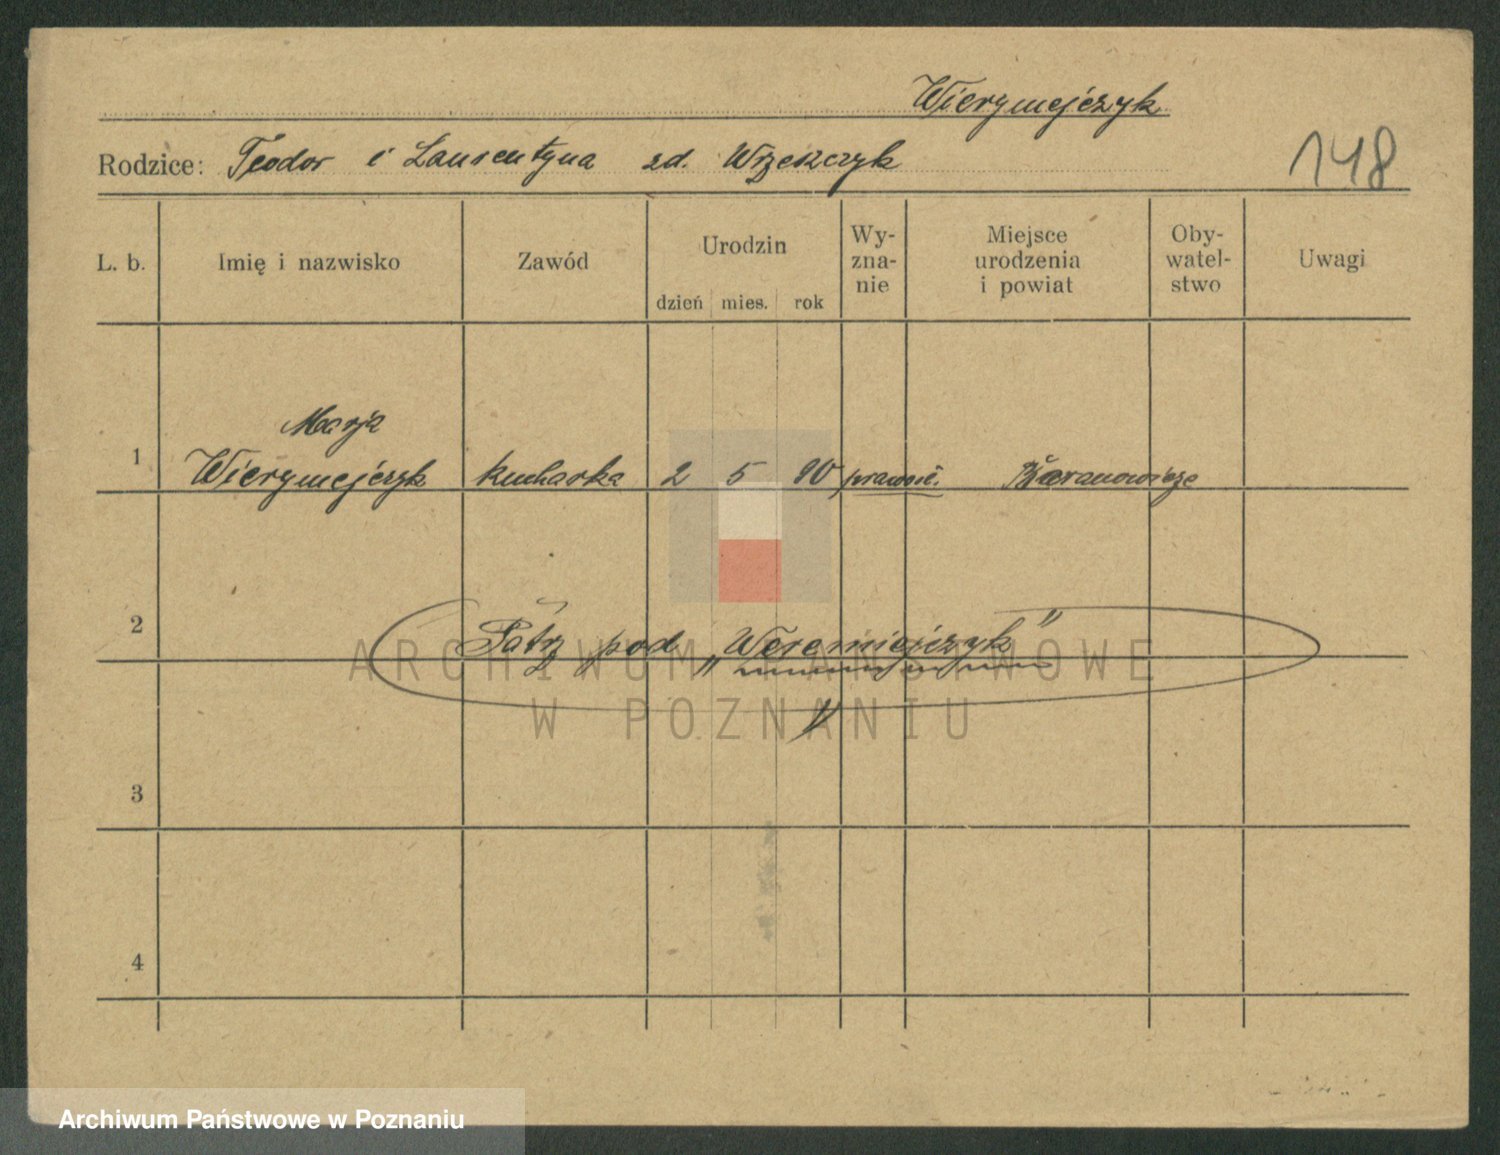 Wierymejczyk
148
Rodzice: Teodor i Laurentyna zd. Wrzeszczyk
L. b. Imię i nazwisko Zawód Urodzin dzień mies. rok Wy-zna-nie Miejsce urodzenia i powiat Oby-watel-stwo Uwagi
Marja
1 Wierymejczyk kucharka 2 5 90 prawosł. Baranowicze
2 Patrz pod „Weremiejczyk"
ARCHIWUM PAŃSTWOWE
W POZNANIU
3
4
Archiwum Państwowe w Poznaniu